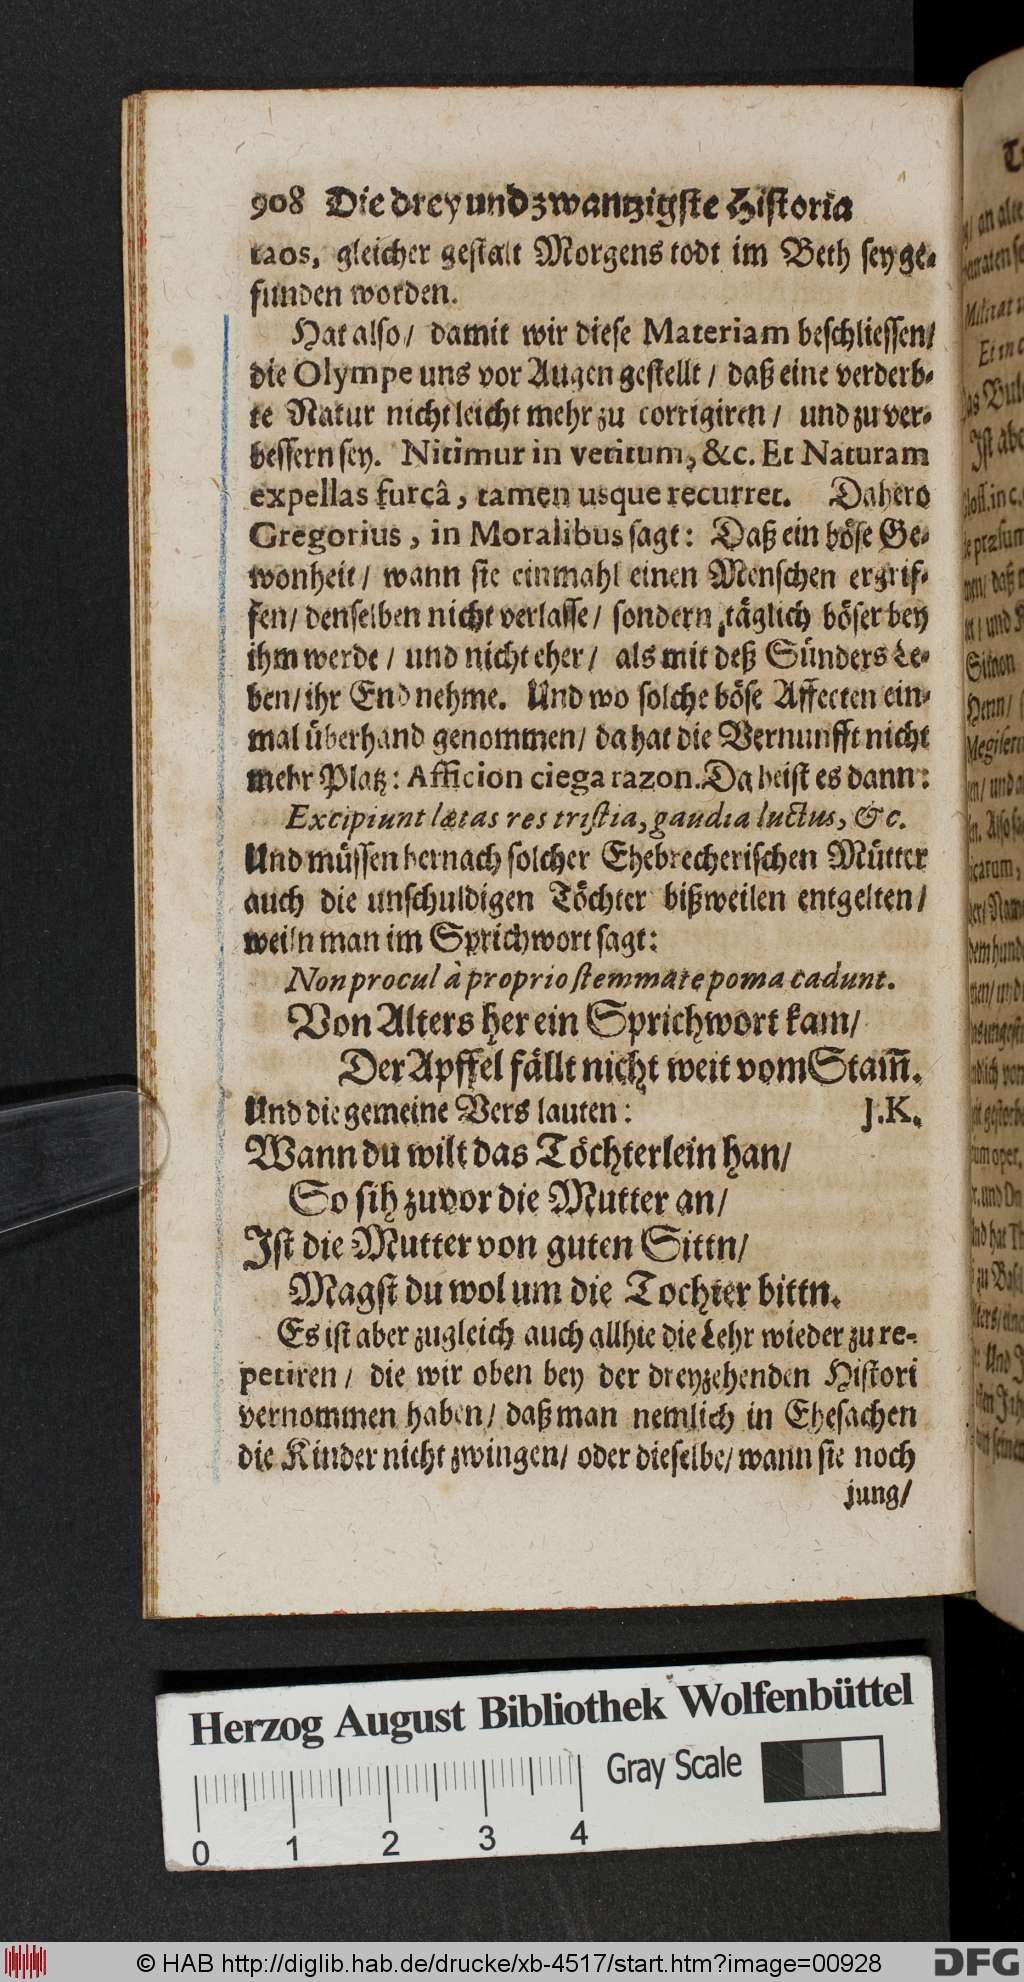 908 Die drey und zwantzigste Historia
taos, gleicher gestalt Morgens todt im Beth sey ge-
funden worden.
Hat also / damit wir diese Materiam beschliessen /
die Olympe uns vor Augen gestellt / daß eine verderb-
te Natur nicht leicht mehr zu corrigiren / und zu ver-
bessern sey. Nitimur in vetitum, &c. Et Naturam
expellas furcâ, tamen usque recurret. Dahero
Gregorius, in Moralibus sagt: Daß ein böse Ge-
wonheit / wann sie einmahl einen Menschen ergrif-
fen / denselben nicht verlasse / sondern täglich böser bey
ihm werde / und nicht eher / als mit deß Sünders Le-
ben / ihr End nehme. Und wo solche böse Affecten ein-
mal überhand genommen / da hat die Vernunfft nicht
mehr Platz: Afficion ciega razon. Da heist es dann:
Excipiunt lætas res tristia, gaudia luctus, &c.
Und müssen hernach solcher Ehebrecherischen Mütter
auch die unschuldigen Töchter bißweilen entgelten /
weiln man im Sprichwort sagt:
Non procul à proprio stemmate poma cadunt.
Von Alters her ein Sprichwort kam /
Der Apffel fällt nicht weit vom Stam̅.
Und die gemeine Vers lauten: J. K.
Wann du wilt das Töchterlein han /
So sih zuvor die Mutter an /
Ist die Mutter von guten Sittn /
Magst du wol um die Tochter bittn.
Es ist aber zugleich auch allhie die Lehr wieder zu re-
petiren / die wir oben bey der dreyzehenden Histori
vernommen haben / daß man nemlich in Ehesachen
die Kinder nicht zwingen / oder dieselbe / wann sie noch
jung /
Herzog August Bibliothek Wolfenbüttel
Gray Scale
0 1 2 3 4
© HAB http://diglib.hab.de/drucke/xb-4517/start.htm?image=00928
DFG